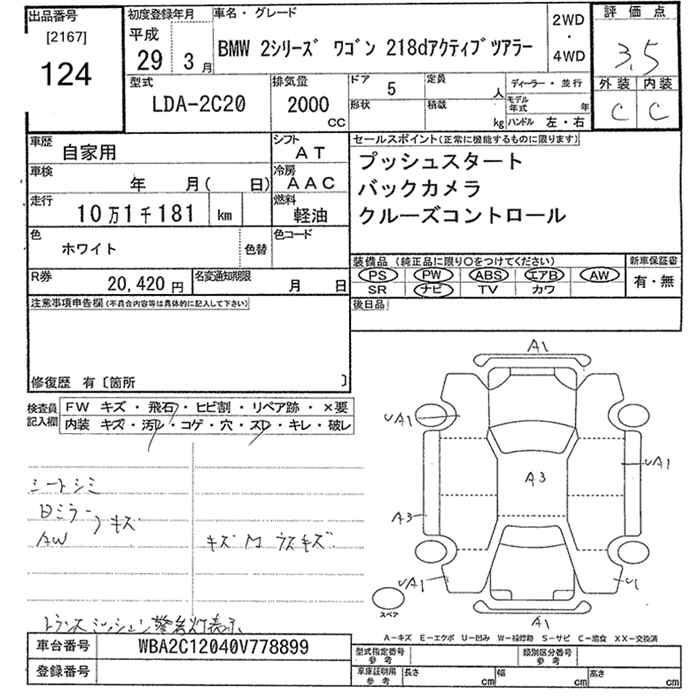 出品番号
[2167]
124
初度登録年月
平成
29 3月
車名・グレード
BMW 2シリーズ ワゴン 218dアクティブツアラー
2WD
・
4WD
評価点
3.5
外装 内装
C C
型式
LDA-2C20
排気量
2000
CC
ドア
5
定員
人
形状
積載
kg
ディーラー・並行
モデル年式 年
ハンドル 左・右
車歴
自家用
シフト
AT
車検
年 月( 日)
冷房
AAC
走行
10万1千181 km
燃料
軽油
色
ホワイト
色替
色コード
R券
20,420円
名変通知期限
月 日
セールスポイント(正常に機能するものに限ります)
プッシュスタート
バックカメラ
クルーズコントロール
装備品(純正品に限り○をつけてください)
新車保証書
PS PW ABS エアB AW
有・無
SR ナビ TV カワ
後日品
注意事項申告欄(不具合内容等は具体的に記入して下さい)
修復歴 有〔箇所 〕
検査員記入欄
FW キズ・飛石・ヒビ割・リペア跡・×要
内装 キズ・汚レ・コゲ・穴・スレ・キレ・破レ
シートシミ
ミラー
キズ
AW
キズ
トランスミッション警告灯表示
A1
UA1
UA1
A3
A3
UA1
U1
A1
スペア
A-キズ E-エクボ U-凹み W-補修跡 S-サビ C-腐食 XX-交換済
車台番号
WBA2C12040V778899
登録番号
型式指定番号
参考
類別区分番号
参考
車庫証明用
参考
長さ cm
幅 cm
高さ cm